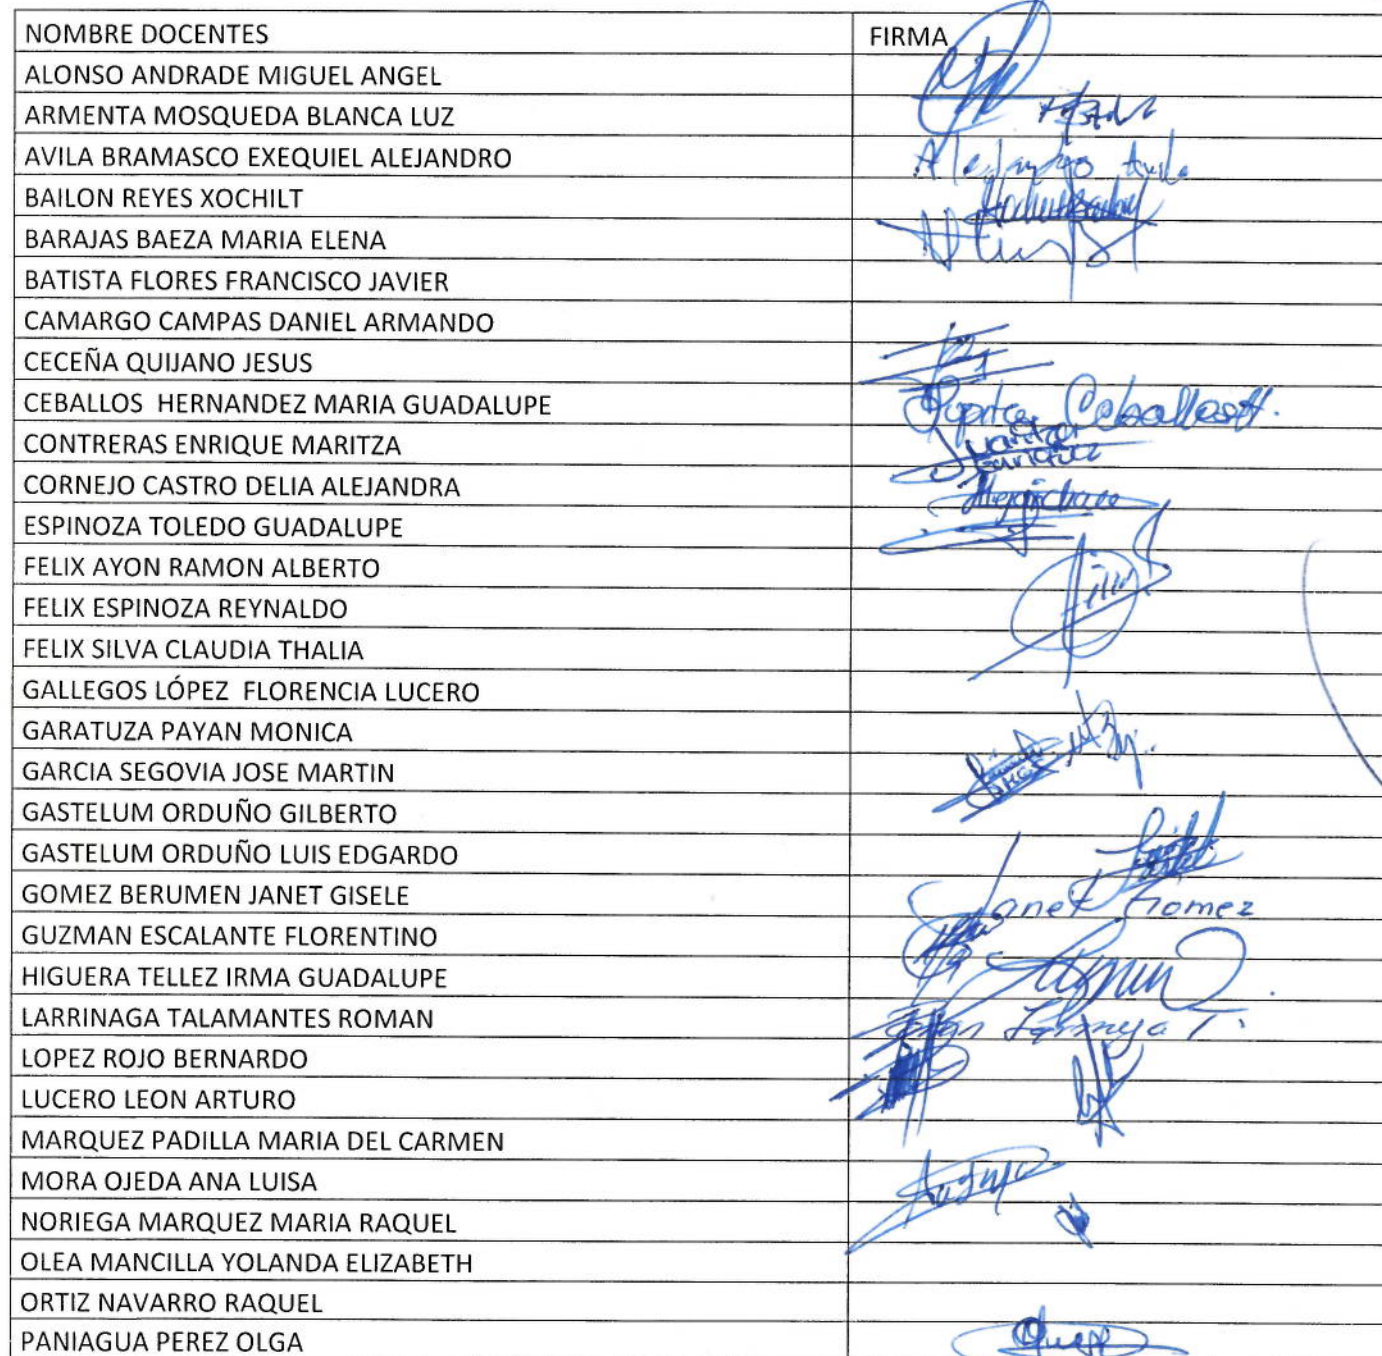 NOMBRE DOCENTES FIRMA
ALONSO ANDRADE MIGUEL ANGEL
ARMENTA MOSQUEDA BLANCA LUZ
AVILA BRAMASCO EXEQUIEL ALEJANDRO Alejandro Avila
BAILON REYES XOCHILT
BARAJAS BAEZA MARIA ELENA
BATISTA FLORES FRANCISCO JAVIER
CAMARGO CAMPAS DANIEL ARMANDO
CECEÑA QUIJANO JESUS
CEBALLOS HERNANDEZ MARIA GUADALUPE
CONTRERAS ENRIQUE MARITZA
CORNEJO CASTRO DELIA ALEJANDRA
ESPINOZA TOLEDO GUADALUPE
FELIX AYON RAMON ALBERTO
FELIX ESPINOZA REYNALDO
FELIX SILVA CLAUDIA THALIA
GALLEGOS LÓPEZ FLORENCIA LUCERO
GARATUZA PAYAN MONICA
GARCIA SEGOVIA JOSE MARTIN
GASTELUM ORDUÑO GILBERTO
GASTELUM ORDUÑO LUIS EDGARDO
GOMEZ BERUMEN JANET GISELE Janet Gomez
GUZMAN ESCALANTE FLORENTINO
HIGUERA TELLEZ IRMA GUADALUPE
LARRINAGA TALAMANTES ROMAN
LOPEZ ROJO BERNARDO
LUCERO LEON ARTURO
MARQUEZ PADILLA MARIA DEL CARMEN
MORA OJEDA ANA LUISA
NORIEGA MARQUEZ MARIA RAQUEL
OLEA MANCILLA YOLANDA ELIZABETH
ORTIZ NAVARRO RAQUEL
PANIAGUA PEREZ OLGA